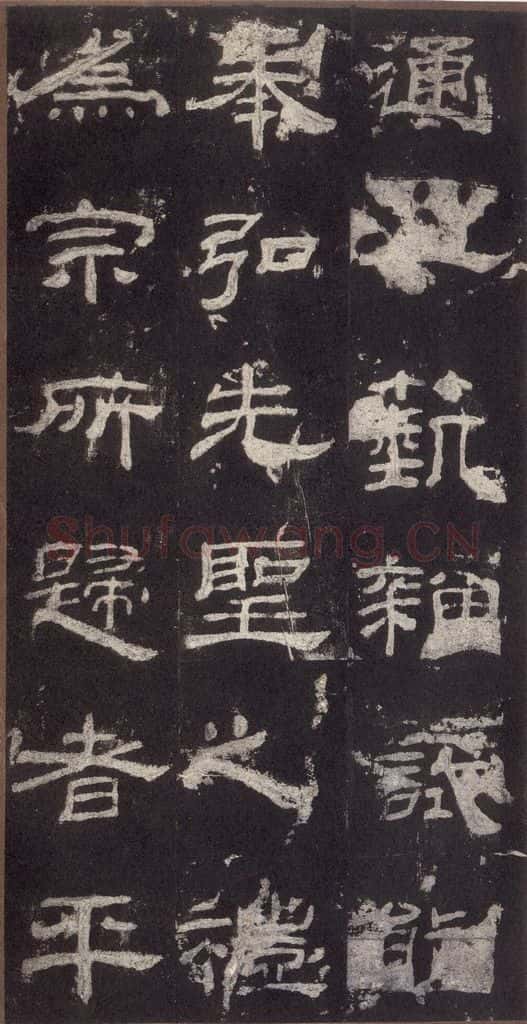 通藝雜試能
奉弘先聖之禮
為宗所歸者平
Shufawang.CN